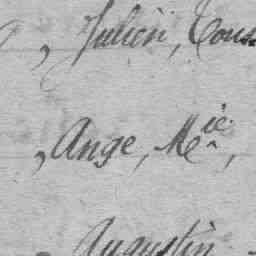 , Julien, Tous
, Ange, Mie,
Augustin